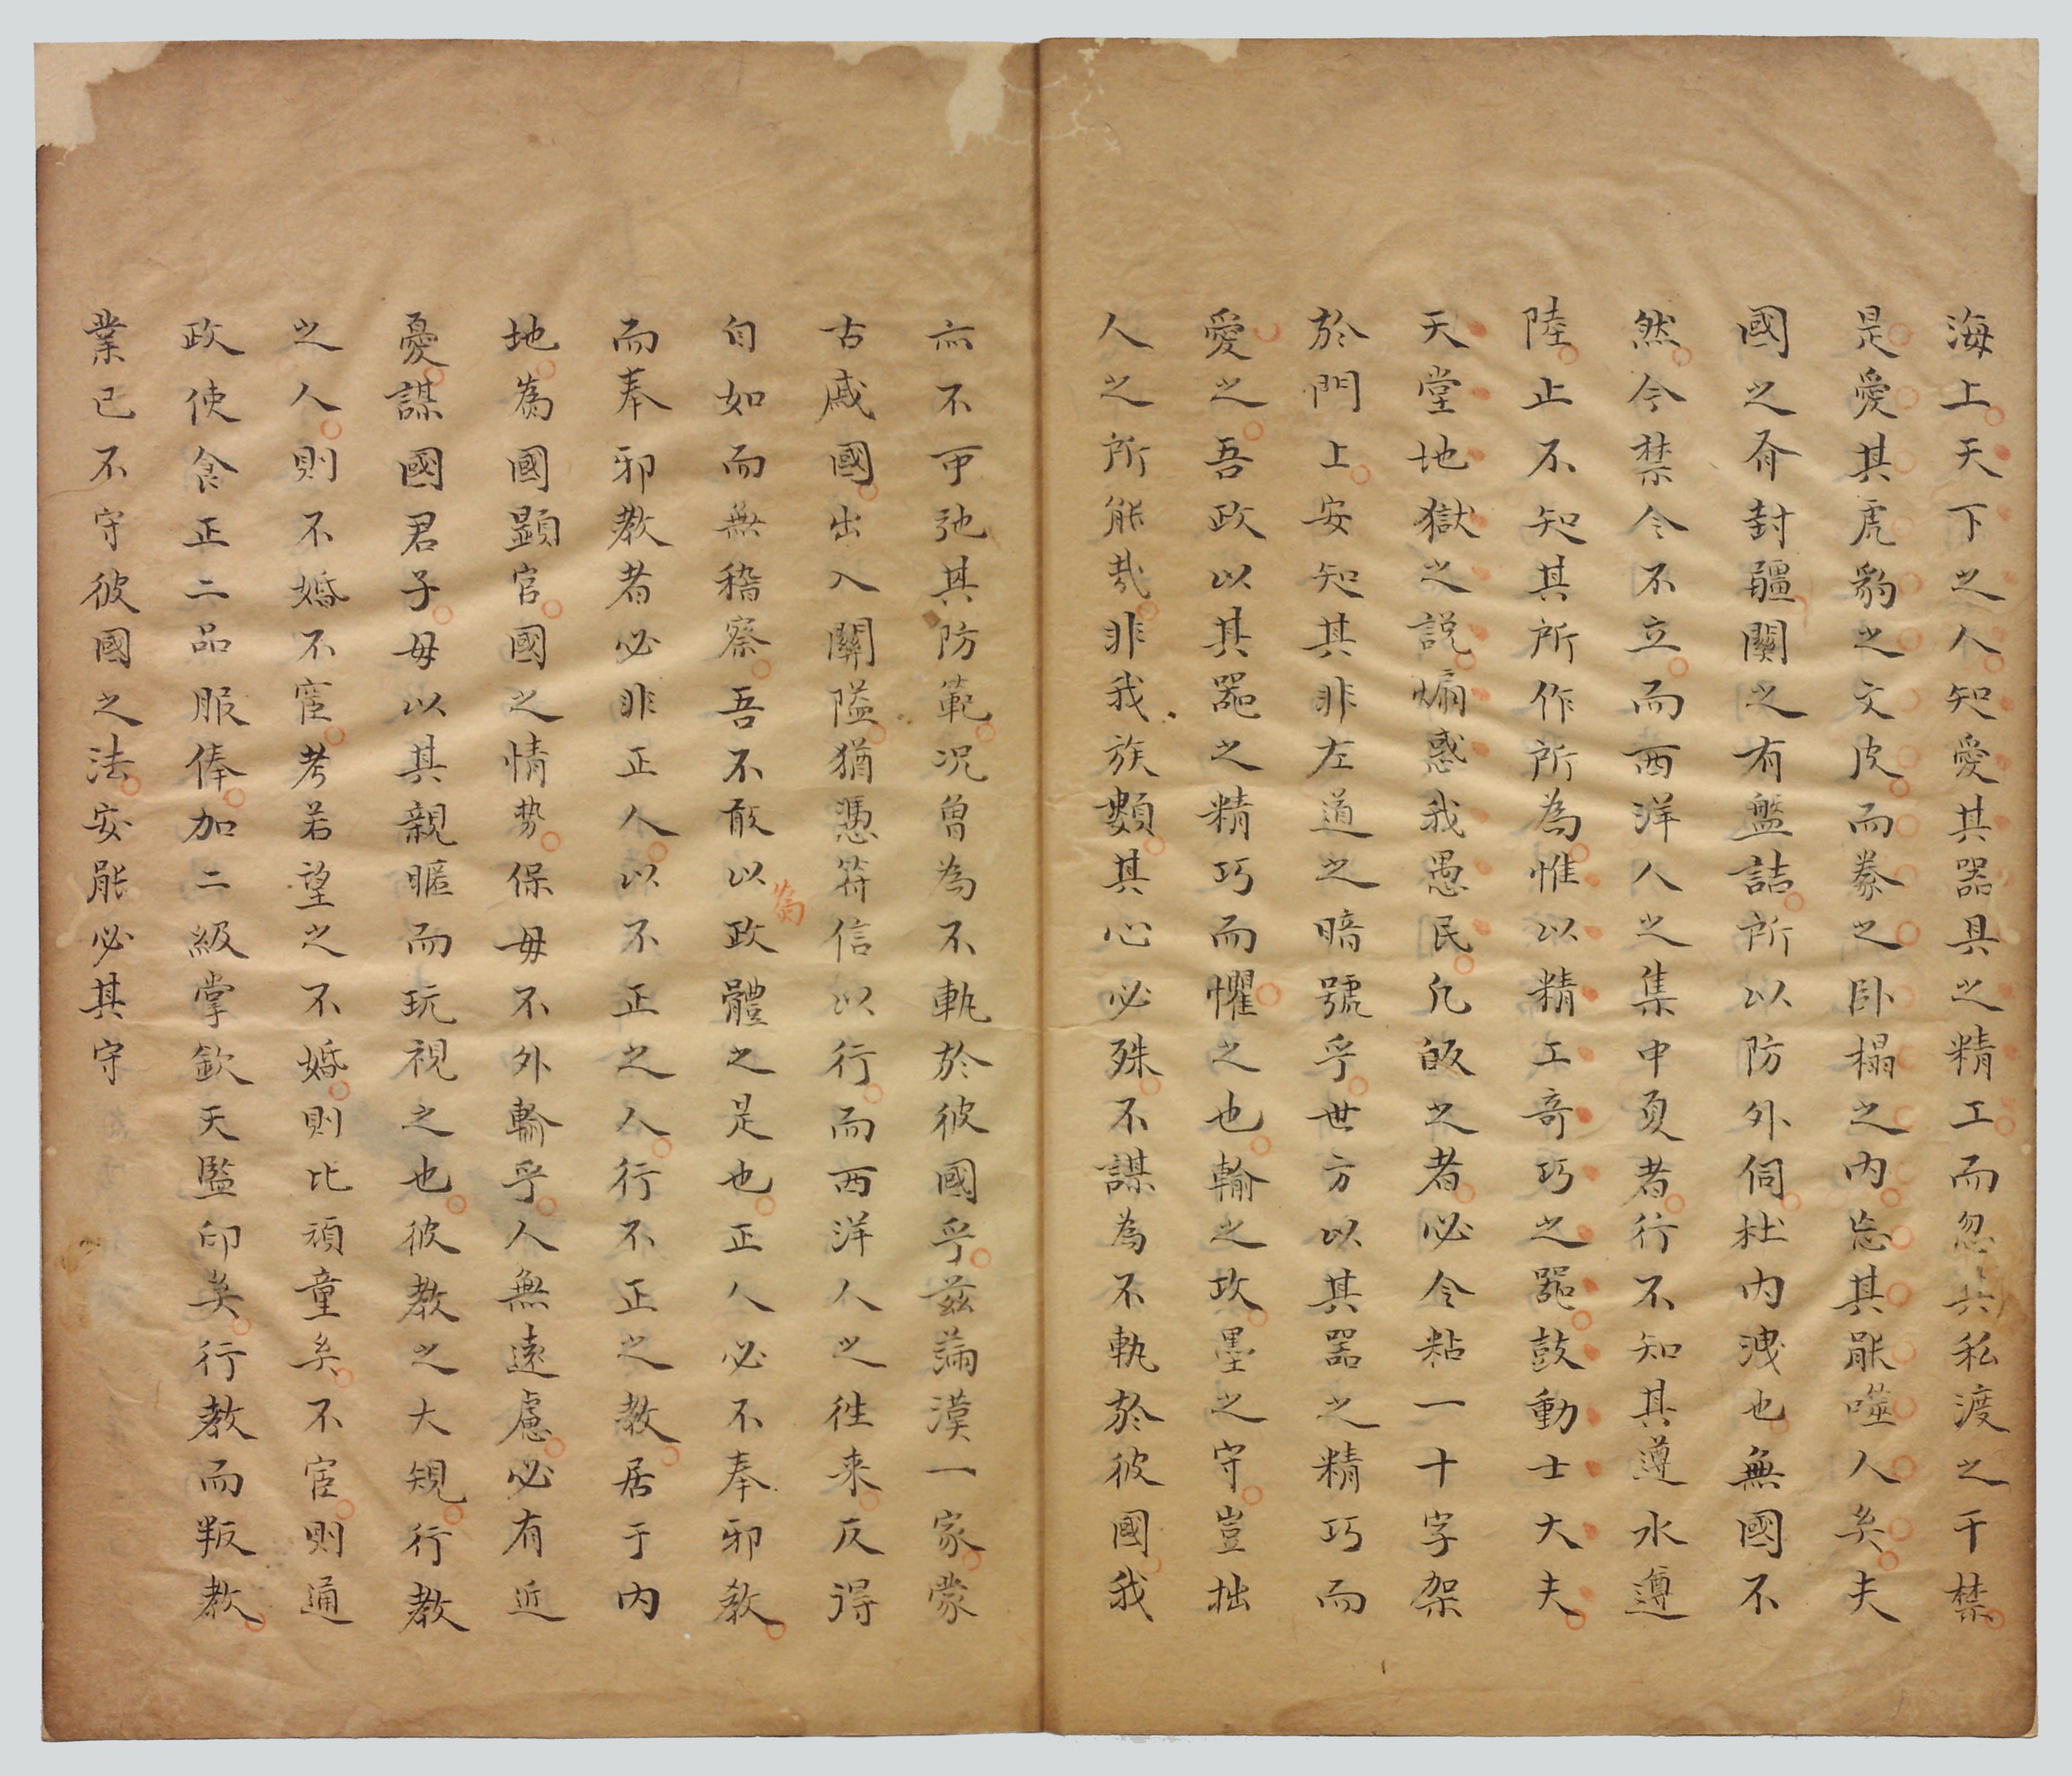 海上天下之人知愛其器具之精工而忽其私渡之干禁
是愛其虎豹之文皮而豢之卧榻之内忘其能噬人矣夫
國之有封疆關之有盤詰所以防外伺杜内洩也無國不
然今禁令不立而西洋人之集中夏者行不知其遵水遵
陸止不知其所作所為惟以精工奇巧之器鼓動士大夫
天堂地獄之説煽惑我愚民凡皈之者必令粘一十字架
於門上安知其非左道之暗號乎世方以其器之精巧而
愛之吾政以其器之精巧而懼之也輸之攻墨之守豈拙
人之所能哉非我族類其心必殊不謀為不軌於彼國我
亦不可弛其防範况曾為不軌於彼國乎兹滿漢一家蒙
古戚國出入關隘猶憑符信以行而西洋人之徃来反得
自如而無稽察吾不敢以為政體之是也正人必不奉邪教
而奉邪教者必非正人以不正之人行不正之教居于内
地為國顕官國之情势保毋不外輸乎人無遠慮必有近
憂謀國君子毋以其親暱而玩視之也彼教之大規行教
之人則不婚不宦考若望之不婚則比頑童矣不宦則通
政使食正二品服俸加二級掌欽天監印矣行教而叛教
業已不守彼國之法安能必其守